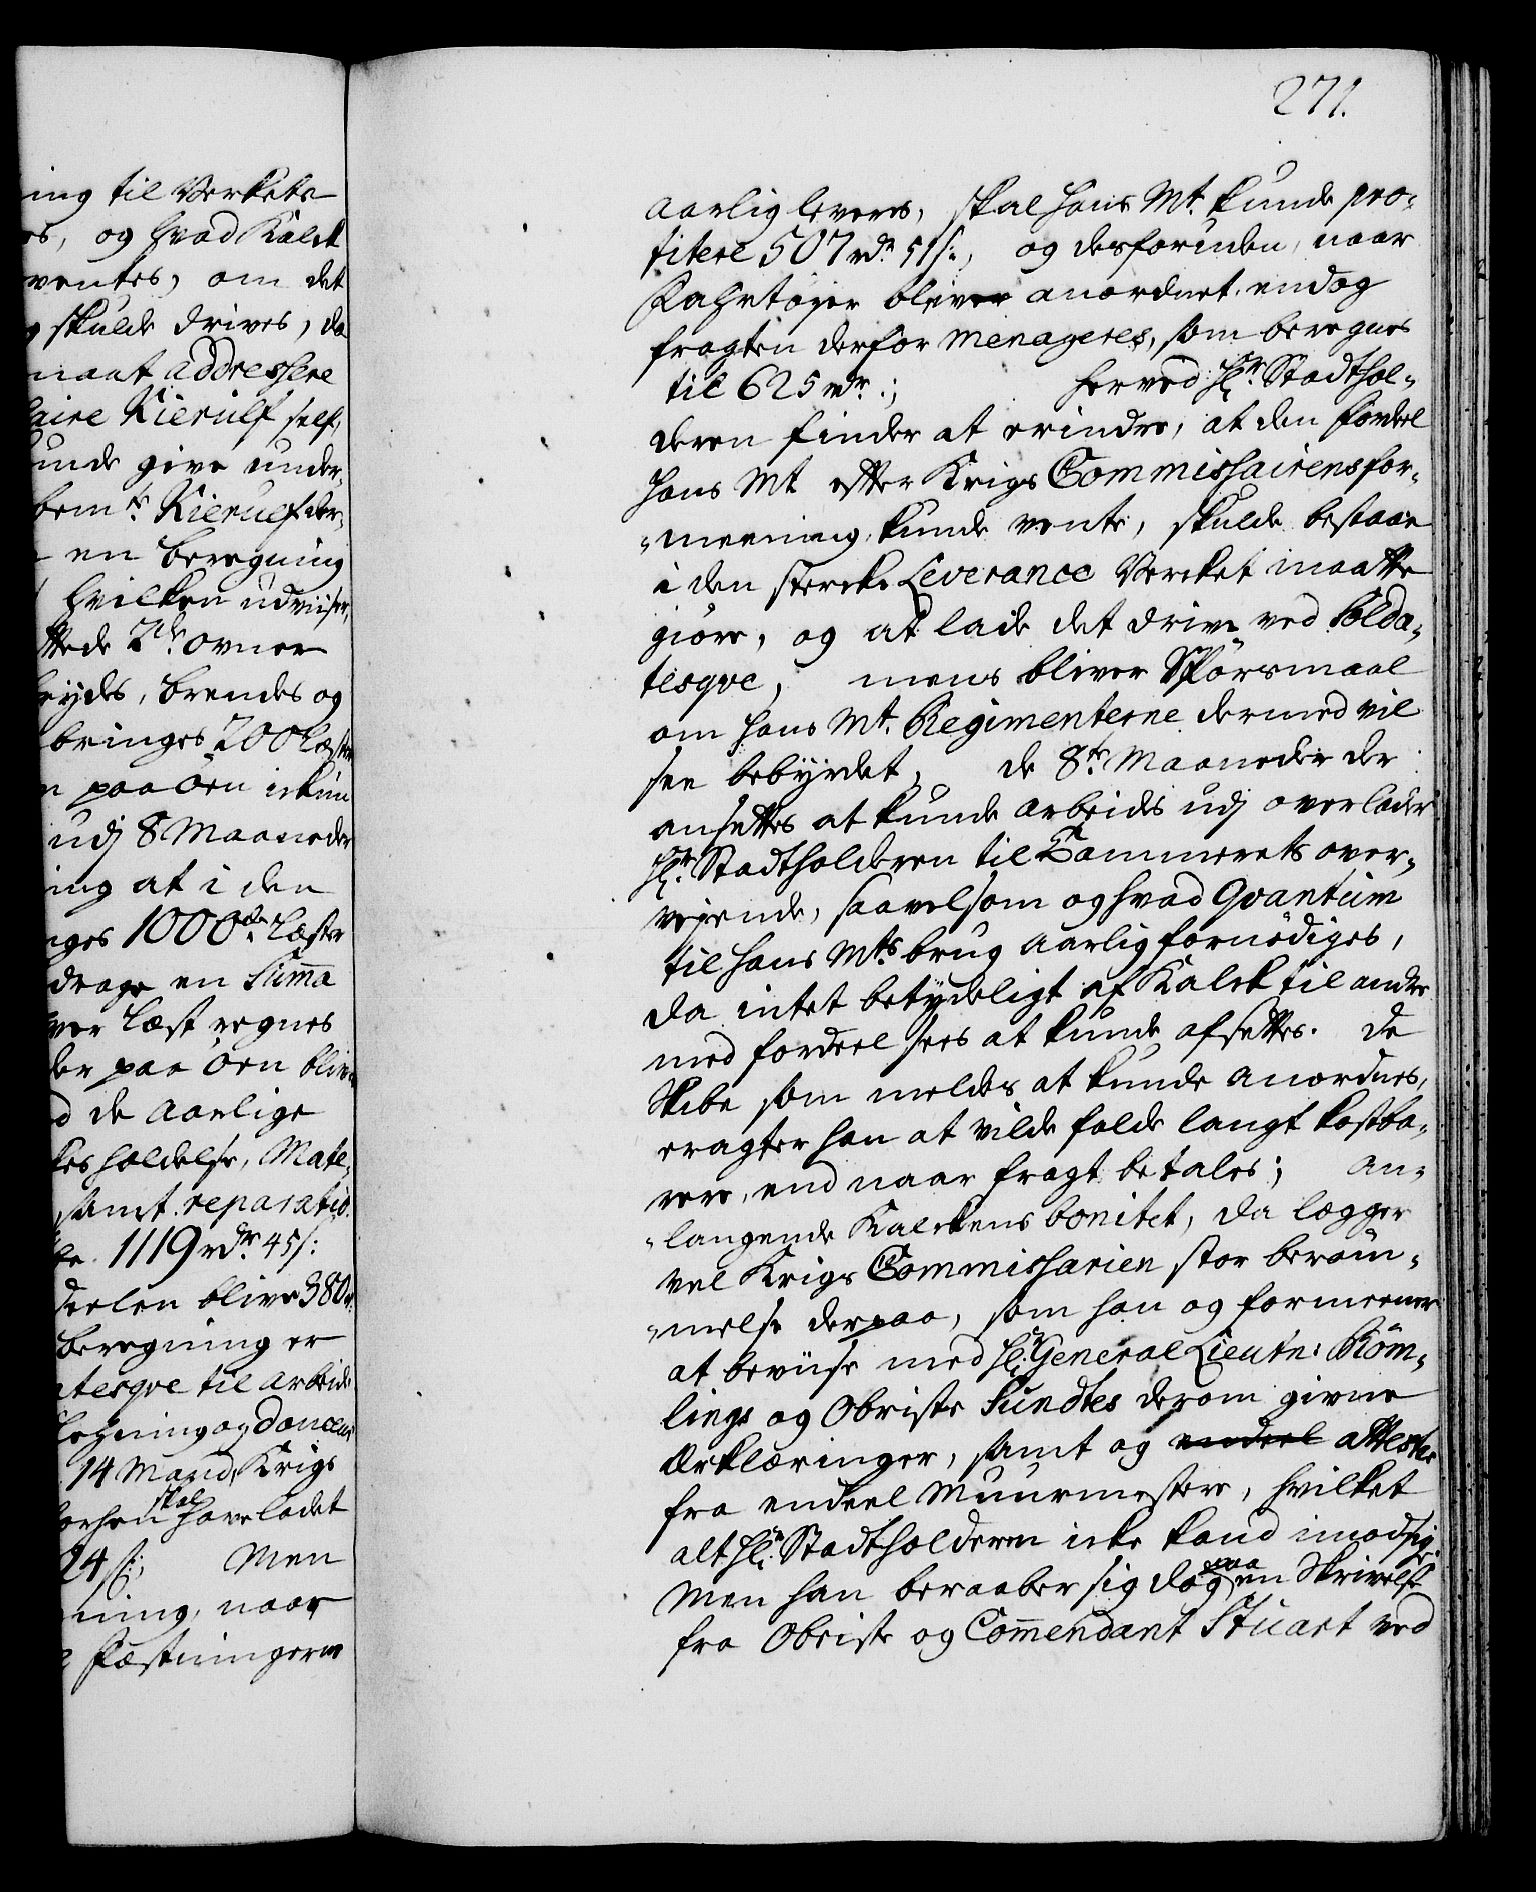 ing til Verkets
es, og hvad Kalck
ventes, om det
skulde drives, da
maat addressere
aire Kierulf self,
unde give under¬
bemte Kierulf der¬
en beregning
hvilken udviiser,
ttede 2de ovner
brydes, brendes og
bringes 200 Læster
paa øen ickun
udj 8 Maaneder
ing at i den
nges 1000de Læster
drage en Summa
ver Læst regnes
der paa øen blive
d de aarlige
kes holdelse, Mate¬
samt reparatio
1119 rdr 45 s:
deelen bliver 380
beregning er
atesqve til arbeide
og Douceur
14 Mand, Krigs
skal
forhen have ladet
24 s:; Men
ning, naar
Fæstningerne
271.
aarlig leveres, skal hans Mt. kunde pro¬
fitere 507 rdr 51 s:, og desforuden, naar
Fahrtøjer bliver anordnet endog
fragten derfor menageres, som beregnes
til 625 rdr:; herved Hr. Stadthol¬
deren finder at erindre, at den fordeel
hans Mt efter Krigs Commissairens for¬
meening kunde vente, skulde bestaae
i den stercke Leverance Vercket maatte
giøre, og at lade det drive ved Solda¬
tesqve, mens bliver Spørsmaal
om hans Mt. Regimenterne dermed vil
see bebyrdet, de 8te Maaneder der
ansettes at kunde arbeides udj overlader
Hr. Stadtholderen til Cammerets over¬
vejende, saavelsom og hvad Qvantum
til hans Mts brug aarlig fornødiges,
da intet betydeligt af Kalck til andre
med fordeel sees at kunde afsettes. De
Skibe som meldes at kunde anordnes,
eragter han at vilde falde langt kostba¬
rere, end naar fragt betales; an¬
langende Kalckens bonitet, da legger
vel Krigs Commissarien stor berøm¬
melse derpaa, som han og formeener
at beviise med Hr. General Lieutn: Røm¬
lings og Obriste Sundtes derom givne
Erklæringer, samt og endeel attester
fra endeel Muurmestere, hvilket
alt Hr. Stadtholderen icke kand imodsige
Men han beraaber sig dog paa en Skrivelse
fra Obriste og Commendant Stuart ved